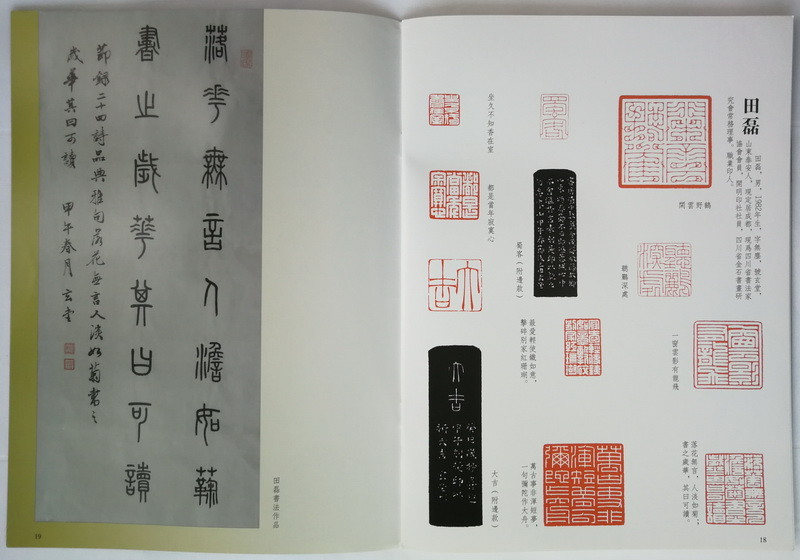 田磊
田磊，男，1982年生，字無塵，號玄堂，
山東泰安人，現定居成都，現爲四川省書法家
協會會員，開明印社社員，四川省金石書畫研
究會常務理事。職業印人。
鶴野雲閑
聽鸝深處
一窗雲影有龍飛
落花無言，人淡如菊；
書之歲華，其曰可讀。
蜀客（附邊款）
最愛輕使鐵如意，
擊碎別家紅珊瑚。
萬古事非渾短夢，
一句彌陀作大舟。
坐久不知香在室
都是當年寂寞心
大吉（附邊款）
大吉
18
落花無言人澹如菊
書止歲華其曰可讀
節錄二十四詩品典雅句落花無言人淡如菊書之
歲華其曰可讀 甲午春月 玄堂
田磊書法作品
19